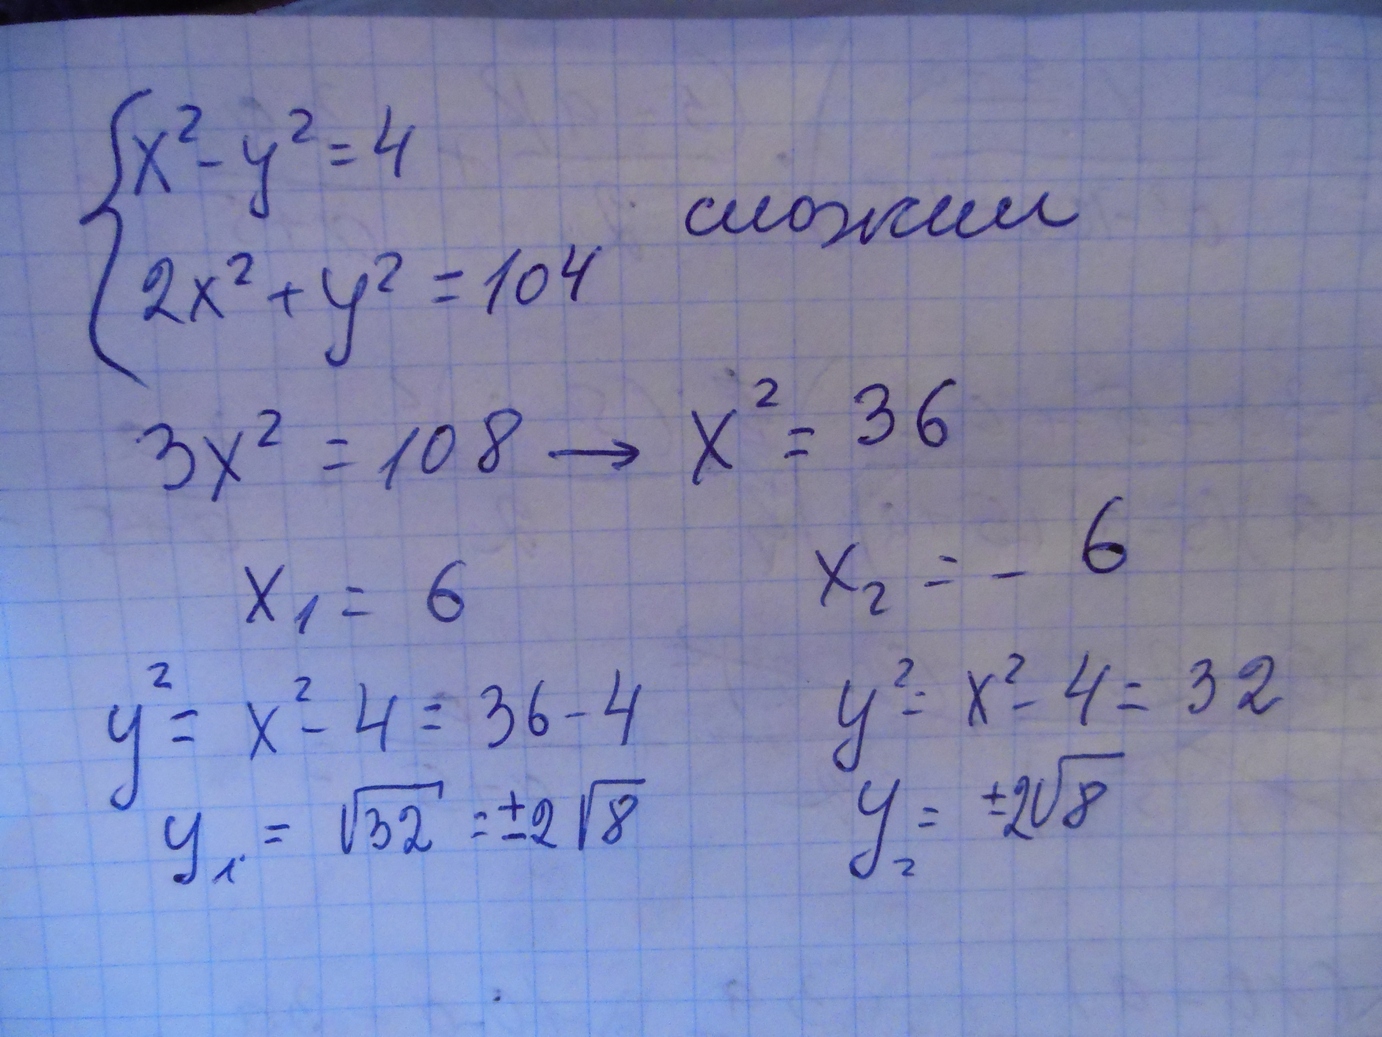 x² - y² = 4
сложим
2x² + y² = 104
3x² = 108 → x² = 36
x₁ = 6 x₂ = - 6
y² = x² - 4 = 36 - 4 y² = x² - 4 = 32
y₁ = √32 = ±2√8 y₂ = ±2√8